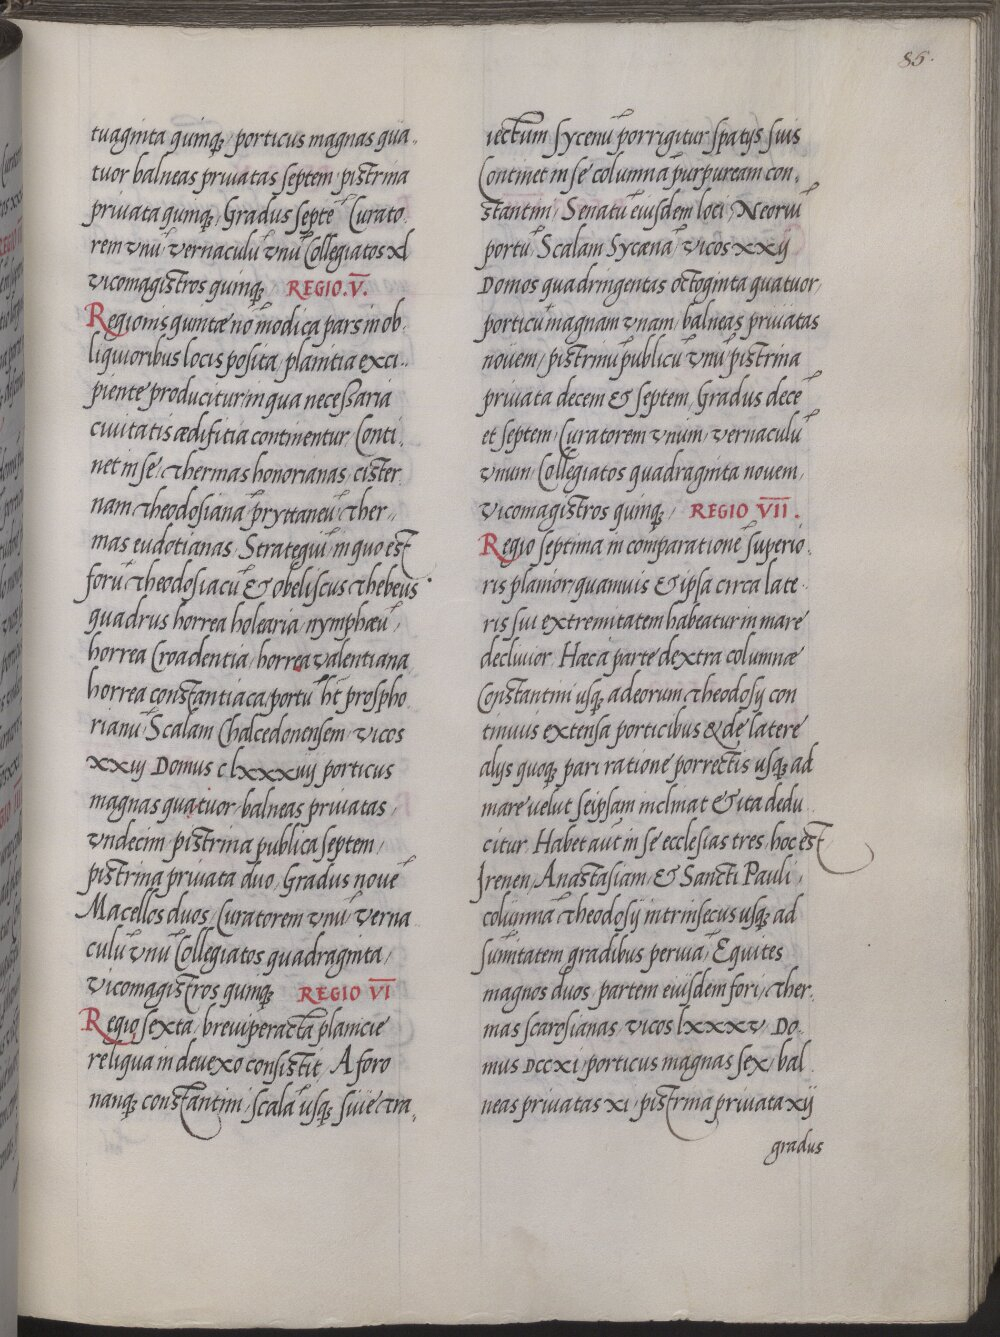 85.
tuaginta quinq; porticus magnas qua
tuor balneas priuatas septem pistrina
priuata quinq; Gradus septē Curato.
rem vnū vernaculū vnū Collegiatos xl
vicomagistros quinq; REGIO.V̅.
Regionis quintæ nō modica pars in ob.
liquioribus locis posita, planitia exci.
piente producitur, in qua necessaria
ciuitatis ædifitia continentur, Conti.
net in se, thermas honorianas, cister
nam theodosianā, pryttaneū, ther,
mas eudotianas, Strategiū, in quo est
forū theodosiacū & obeliscus thebeus
quadrus horrea holearia, nymphæū,
horrea Croadentia, horrea valentiana
horrea constantiaca, portū hēt prospho
rianū, Scalam Chalcedonensem, vicos
xxiij Domus clxxxiiij porticus
magnas quatuor, balneas priuatas,
vndecim pistrina publica septem,
pistrina priuata duo, Gradus nouē
Macellos duos, Curatorem vnū verna
culū vnū Collegiatos quadraginta,
vicomagistros quinq; REGIO V̅I̅
Regio sexta, breui peracta planicie
reliqua in deuexo consistit, A foro
nanq; constantini, scalā usq; siue tra,
iectum sycenū porrigitur spatijs suis
Continet in se columnā purpuream con.
stantini, Senatū eiusdem loci, Neoriū
portū, Scalam sycænā, vicos xxij
Domos quadringentas octoginta quatuor,
porticū magnam vnam, balneas priuatas
nouem, pistrinū publicū vnū pistrina
priuata decem & septem, Gradus decē
et septem, Curatorem vnum, vernaculū
vnum, Collegiatos quadraginta nouem,
vicomagistros quinq; REGIO V̅I̅I̅.
Regio septima in comparatione superio.
ris planior, quamuis & ipsa circa late.
ris sui extremitatem habeatur in mare
decliuior, Hæc a parte dextra columnæ
Constantini usq; ad eorum theodosij con
tinuis extensa porticibus & de latere
alijs quoq; pari ratione porrectis usq; ad
mare velut seipsam inclinat & ita dedu
citur, Habet aūt in se ecclesias tres, hoc est
Irenen, Anastasiam, & Sancti Pauli,
columnā theodosij intrinsecus usq; ad
sūmitatem gradibus peruiā, Equites
magnos duos, partem eiusdem fori, ther.
mas scarosianas, vicos lxxxv, Do.
mus Dccxi, porticus magnas sex, bal
neas priuatas xi, pistrina priuata xij
gradus